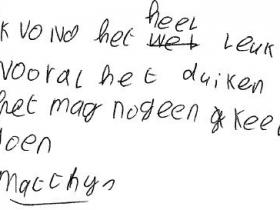 k VoNd het heel leuk
vooral het duiken
het mag nogeen keer
doen
Matthys